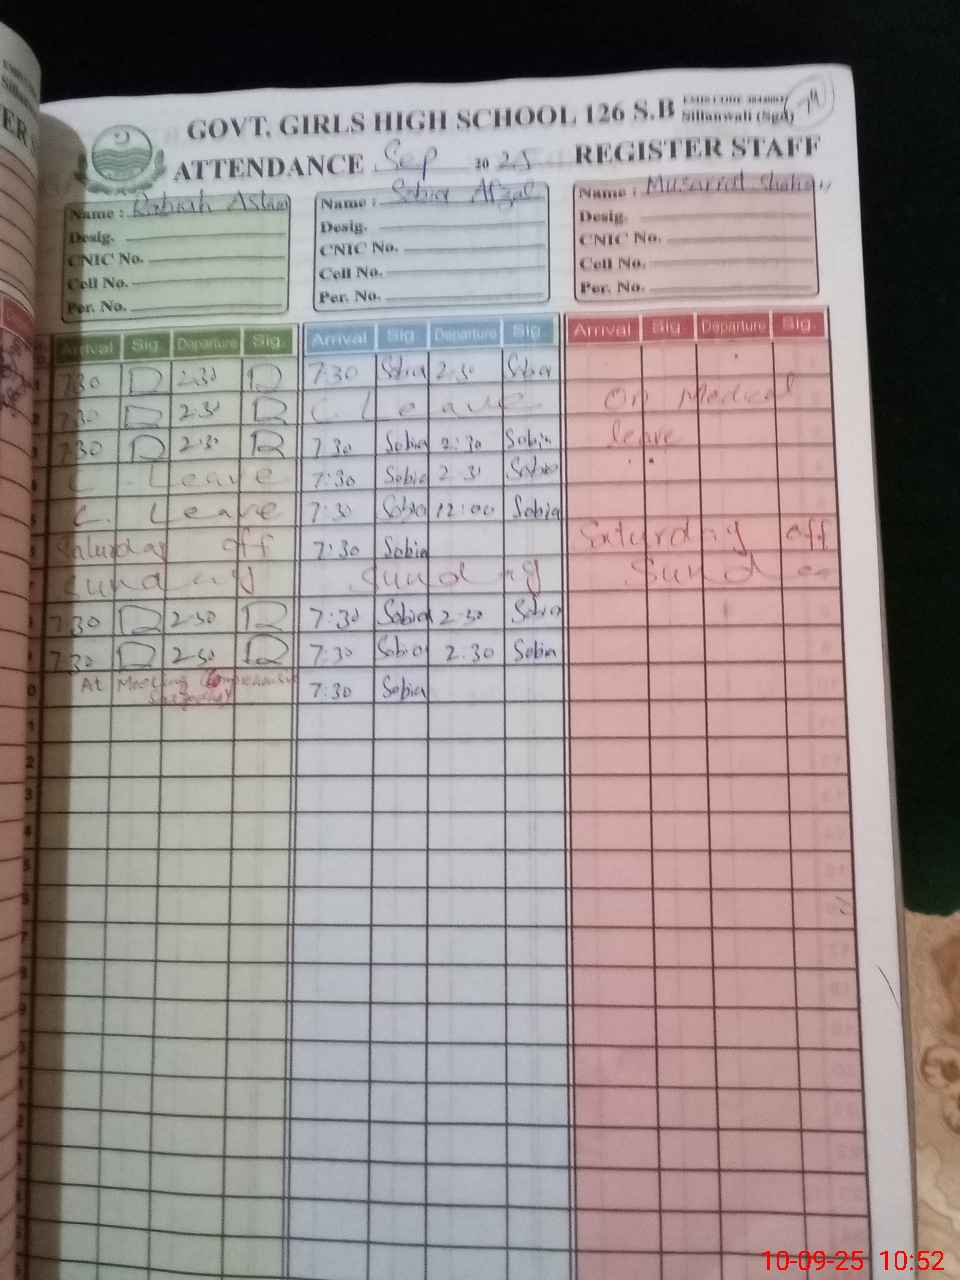 GOVT. GIRLS HIGH SCHOOL 126 S.B
Sillanwali (Sgd)
ATTENDANCE Sep 2025 REGISTER STAFF
Name : Rabiah Aslam Name : Sobia Afzal Name : Musarrat Shaheen
Desig. Desig. Desig.
CNIC No. CNIC No. CNIC No.
Cell No. Cell No. Cell No.
Per. No. Per. No. Per. No.
Arrival Sig. Departure Sig. Arrival Sig. Departure Sig. Arrival Sig. Departure Sig.
7:30 2:30 7:30 Sobia 2:30 Sobia
7:30 2:30 C. Leave On Medical
7:30 2:30 7:30 Sobia 2:30 Sobia leave
C. Leave 7:30 Sobia 2:30 Sobia
C. Leave 7:30 Sobia 12:00 Sobia
Saturday off 7:30 Sobia Saturday off
Sunday Sunday Sund
7:30 2:30 7:30 Sobia 2:30 Sobia
7:30 2:30 7:30 Sobia 2:30 Sobia
At Meeting 7:30 Sobia
10-09-25 10:52